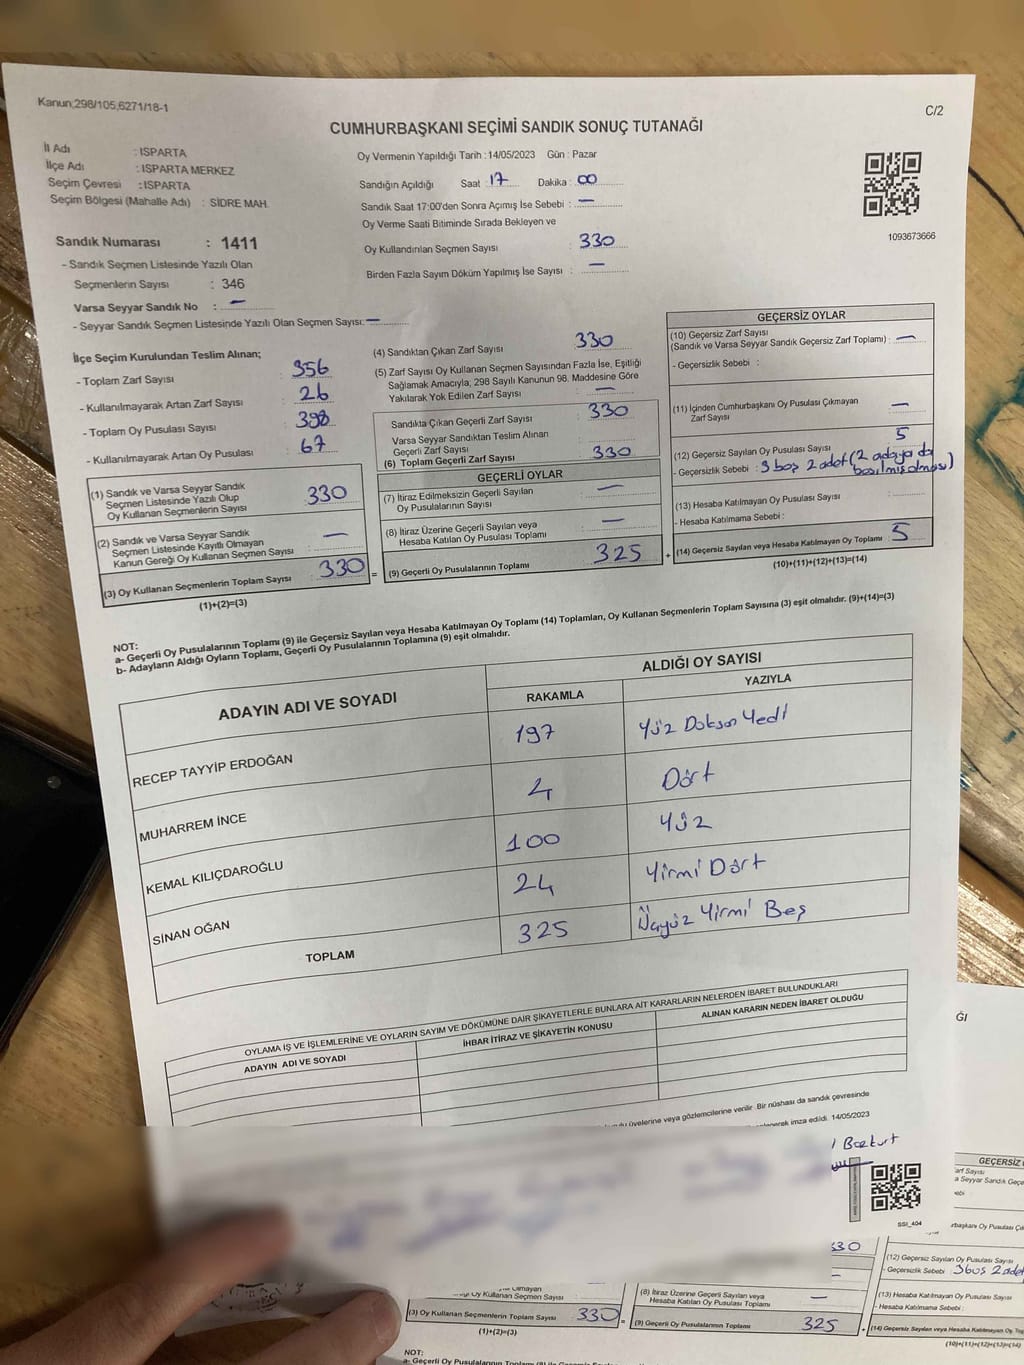 Kanun;298/105,6271/18-1
C/2
CUMHURBAŞKANI SEÇİMİ SANDIK SONUÇ TUTANAĞI
İl Adı : ISPARTA
İlçe Adı : ISPARTA MERKEZ
Seçim Çevresi : ISPARTA
Seçim Bölgesi (Mahalle Adı) : SİDRE MAH.
Oy Vermenin Yapıldığı Tarih : 14/05/2023 Gün : Pazar
Sandığın Açıldığı Saat : 17 Dakika : 00
Sandık Saat 17:00'den Sonra Açımış İse Sebebi : —
Oy Verme Saati Bitiminde Sırada Bekleyen ve
Oy Kullandırılan Seçmen Sayısı : 330
Birden Fazla Sayım Döküm Yapılmış İse Sayısı : —
1093673666
Sandık Numarası : 1411
- Sandık Seçmen Listesinde Yazılı Olan
Seçmenlerin Sayısı : 346
Varsa Seyyar Sandık No : —
- Seyyar Sandık Seçmen Listesinde Yazılı Olan Seçmen Sayısı: —
İlçe Seçim Kurulundan Teslim Alınan;
- Toplam Zarf Sayısı : 356
- Kullanılmayarak Artan Zarf Sayısı : 26
- Toplam Oy Pusulası Sayısı : 398
- Kullanılmayarak Artan Oy Pusulası : 67
(1) Sandık ve Varsa Seyyar Sandık
Seçmen Listesinde Yazılı Olup
Oy Kullanan Seçmenlerin Sayısı : 330
(2) Sandık ve Varsa Seyyar Sandık
Seçmen Listesinde Kayıtlı Olmayan
Kanun Gereği Oy Kullanan Seçmen Sayısı : —
(3) Oy Kullanan Seçmenlerin Toplam Sayısı : 330 =
(1)+(2)=(3)
(4) Sandıktan Çıkan Zarf Sayısı : 330
(5) Zarf Sayısı Oy Kullanan Seçmen Sayısından Fazla İse, Eşitliği
Sağlamak Amacıyla; 298 Sayılı Kanunun 98. Maddesine Göre
Yakılarak Yok Edilen Zarf Sayısı : —
Sandıkta Çıkan Geçerli Zarf Sayısı : 330
Varsa Seyyar Sandıktan Teslim Alınan
Geçerli Zarf Sayısı :
(6) Toplam Geçerli Zarf Sayısı : 330
GEÇERLİ OYLAR
(7) İtiraz Edilmeksizin Geçerli Sayılan
Oy Pusulalarının Sayısı : —
(8) İtiraz Üzerine Geçerli Sayılan veya
Hesaba Katılan Oy Pusulası Toplamı : —
(9) Geçerli Oy Pusulalarının Toplamı : 325 +
GEÇERSİZ OYLAR
(10) Geçersiz Zarf Sayısı
(Sandık ve Varsa Seyyar Sandık Geçersiz Zarf Toplamı) : —
- Geçersizlik Sebebi :
(11) İçinden Cumhurbaşkanı Oy Pusulası Çıkmayan
Zarf Sayısı : —
(12) Geçersiz Sayılan Oy Pusulası Sayısı : 5
- Geçersizlik Sebebi : 3 boş 2 adet (2 adaya da
basılmış olması)
(13) Hesaba Katılmayan Oy Pusulası Sayısı :
- Hesaba Katılmama Sebebi :
(14) Geçersiz Sayılan veya Hesaba Katılmayan Oy Toplamı : 5
(10)+(11)+(12)+(13)=(14)
NOT:
a- Geçerli Oy Pusulalarının Toplamı (9) ile Geçersiz Sayılan veya Hesaba Katılmayan Oy Toplamı (14) Toplamları, Oy Kullanan Seçmenlerin Toplam Sayısına (3) eşit olmalıdır. (9)+(14)=(3)
b- Adayların Aldığı Oyların Toplamı, Geçerli Oy Pusulalarının Toplamına (9) eşit olmalıdır.
ADAYIN ADI VE SOYADI
ALDIĞI OY SAYISI
RAKAMLA YAZIYLA
RECEP TAYYİP ERDOĞAN 197 Yüz Doksan Yedi
MUHARREM İNCE 4 Dört
KEMAL KILIÇDAROĞLU 100 Yüz
SİNAN OĞAN 24 Yirmi Dört
TOPLAM 325 Üçyüz Yirmi Beş
OYLAMA İŞ VE İŞLEMLERİNE VE OYLARIN SAYIM VE DÖKÜMÜNE DAİR ŞİKAYETLERLE BUNLARA AİT KARARLARIN NELERDEN İBARET BULUNDUKLARI
ADAYIN ADI VE SOYADI İHBAR İTİRAZ VE ŞİKAYETİN KONUSU ALINAN KARARIN NEDEN İBARET OLDUĞU
üyelerine veya gözlemcilerine verilir. Bir nüshası da sandık çevresinde
imza edildi. 14/05/2023
Bozkurt
SSI_404
ĞI
GEÇERSİZ
Zarf Sayısı
a Seyyar Sandık Geçe
ebi :
başkanı Oy Pusulası Çı
330
(12) Geçersiz Sayılan Oy Pusulası Sayısı
- Geçersizlik Sebebi : 3 boş 2 adet
(13) Hesaba Katılmayan Oy Pusulası Sayısı
- Hesaba Katılmama Sebebi :
(14) Geçersiz Sayılan veya Hesaba Katılmayan Oy To
(10)+(11)+(12)+(13)=(14)
Olmayan
Oy Kullanan Seçmen Sayısı :
(3) Oy Kullanan Seçmenlerin Toplam Sayısı : 330 =
(1)+(2)=(3)
(8) İtiraz Üzerine Geçerli Sayılan veya
Hesaba Katılan Oy Pusulası Toplamı : —
(9) Geçerli Oy Pusulalarının Toplamı : 325 +
NOT: